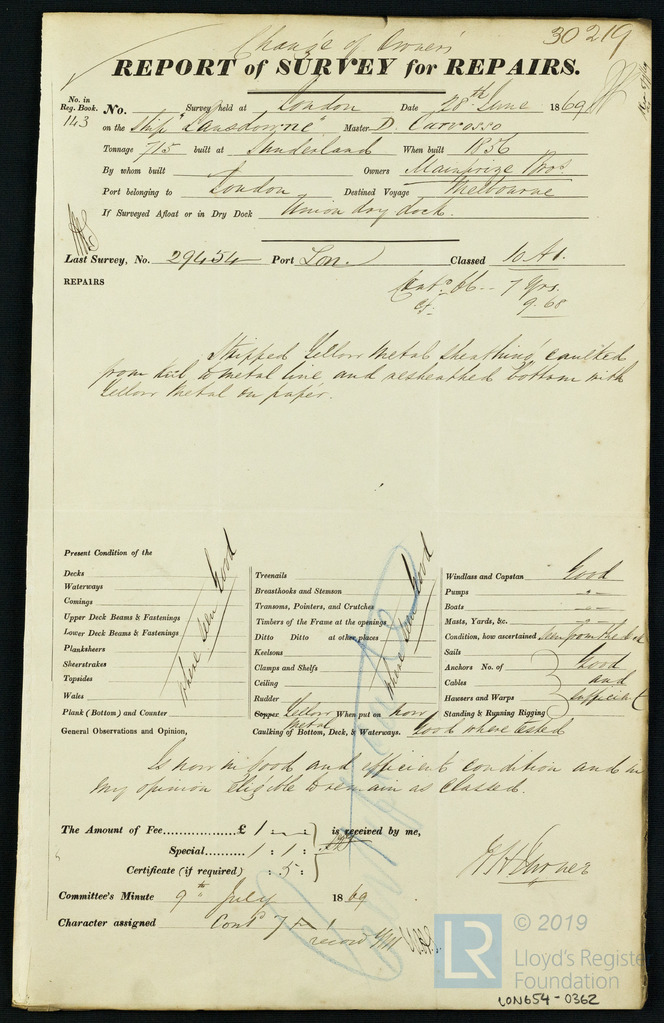 Change of Owners
30219
REPORT of SURVEY for REPAIRS.
No. in Reg. Book. 143
No. Survey held at London Date 28th June 1869
on the Ship "Lansdowne" Master D. Curvosso
Tonnage 715 built at Sunderland When built 1836
By whom built Owners Mainprize Bros
Port belonging to London Destined Voyage Melbourne
If Surveyed Afloat or in Dry Dock Union dry dock.
Last Survey, No. 29454 Port Lon. Classed 10 A1.
REPAIRS
Contd 66 -- 7 Yrs.
9.68
Stripped Yellow Metal Sheathing, caulked
from keel to metal line and resheathed bottom with
Yellow Metal on paper.
Present Condition of the
Decks
Waterways
Comings
Upper Deck Beams & Fastenings
Lower Deck Beams & Fastenings
Planksheers
Sheerstrakes
Topsides
Wales
Plank (Bottom) and Counter
where seen Good
Treenails
Breasthooks and Stemson
Transoms, Pointers, and Crutches
Timbers of the Frame at the openings
Ditto Ditto at other places
Keelsons
Clamps and Shelfs
Ceiling
Rudder
where seen Good
Copper Yellow Metal When put on now
Windlass and Capstan Good
Pumps "
Boats "
Masts, Yards, &c. "
Condition, how ascertained Seen from the deck
Sails
Anchors No. of
Cables
Hawsers and Warps
Standing & Running Rigging
Good and sufficient
General Observations and Opinion, Caulking of Bottom, Deck, & Waterways. Good where tested
Is now in good and efficient condition and in
my opinion eligible to remain as Classed.
The Amount of Fee £ 1 : - : - is received by me,
Special 1 : 1 :
Certificate (if required) : 5 :
Committee's Minute 9th July 1869
Character assigned Contd 7 A 1
© 2019
LR
Lloyd's Register
Foundation
LON654-0362